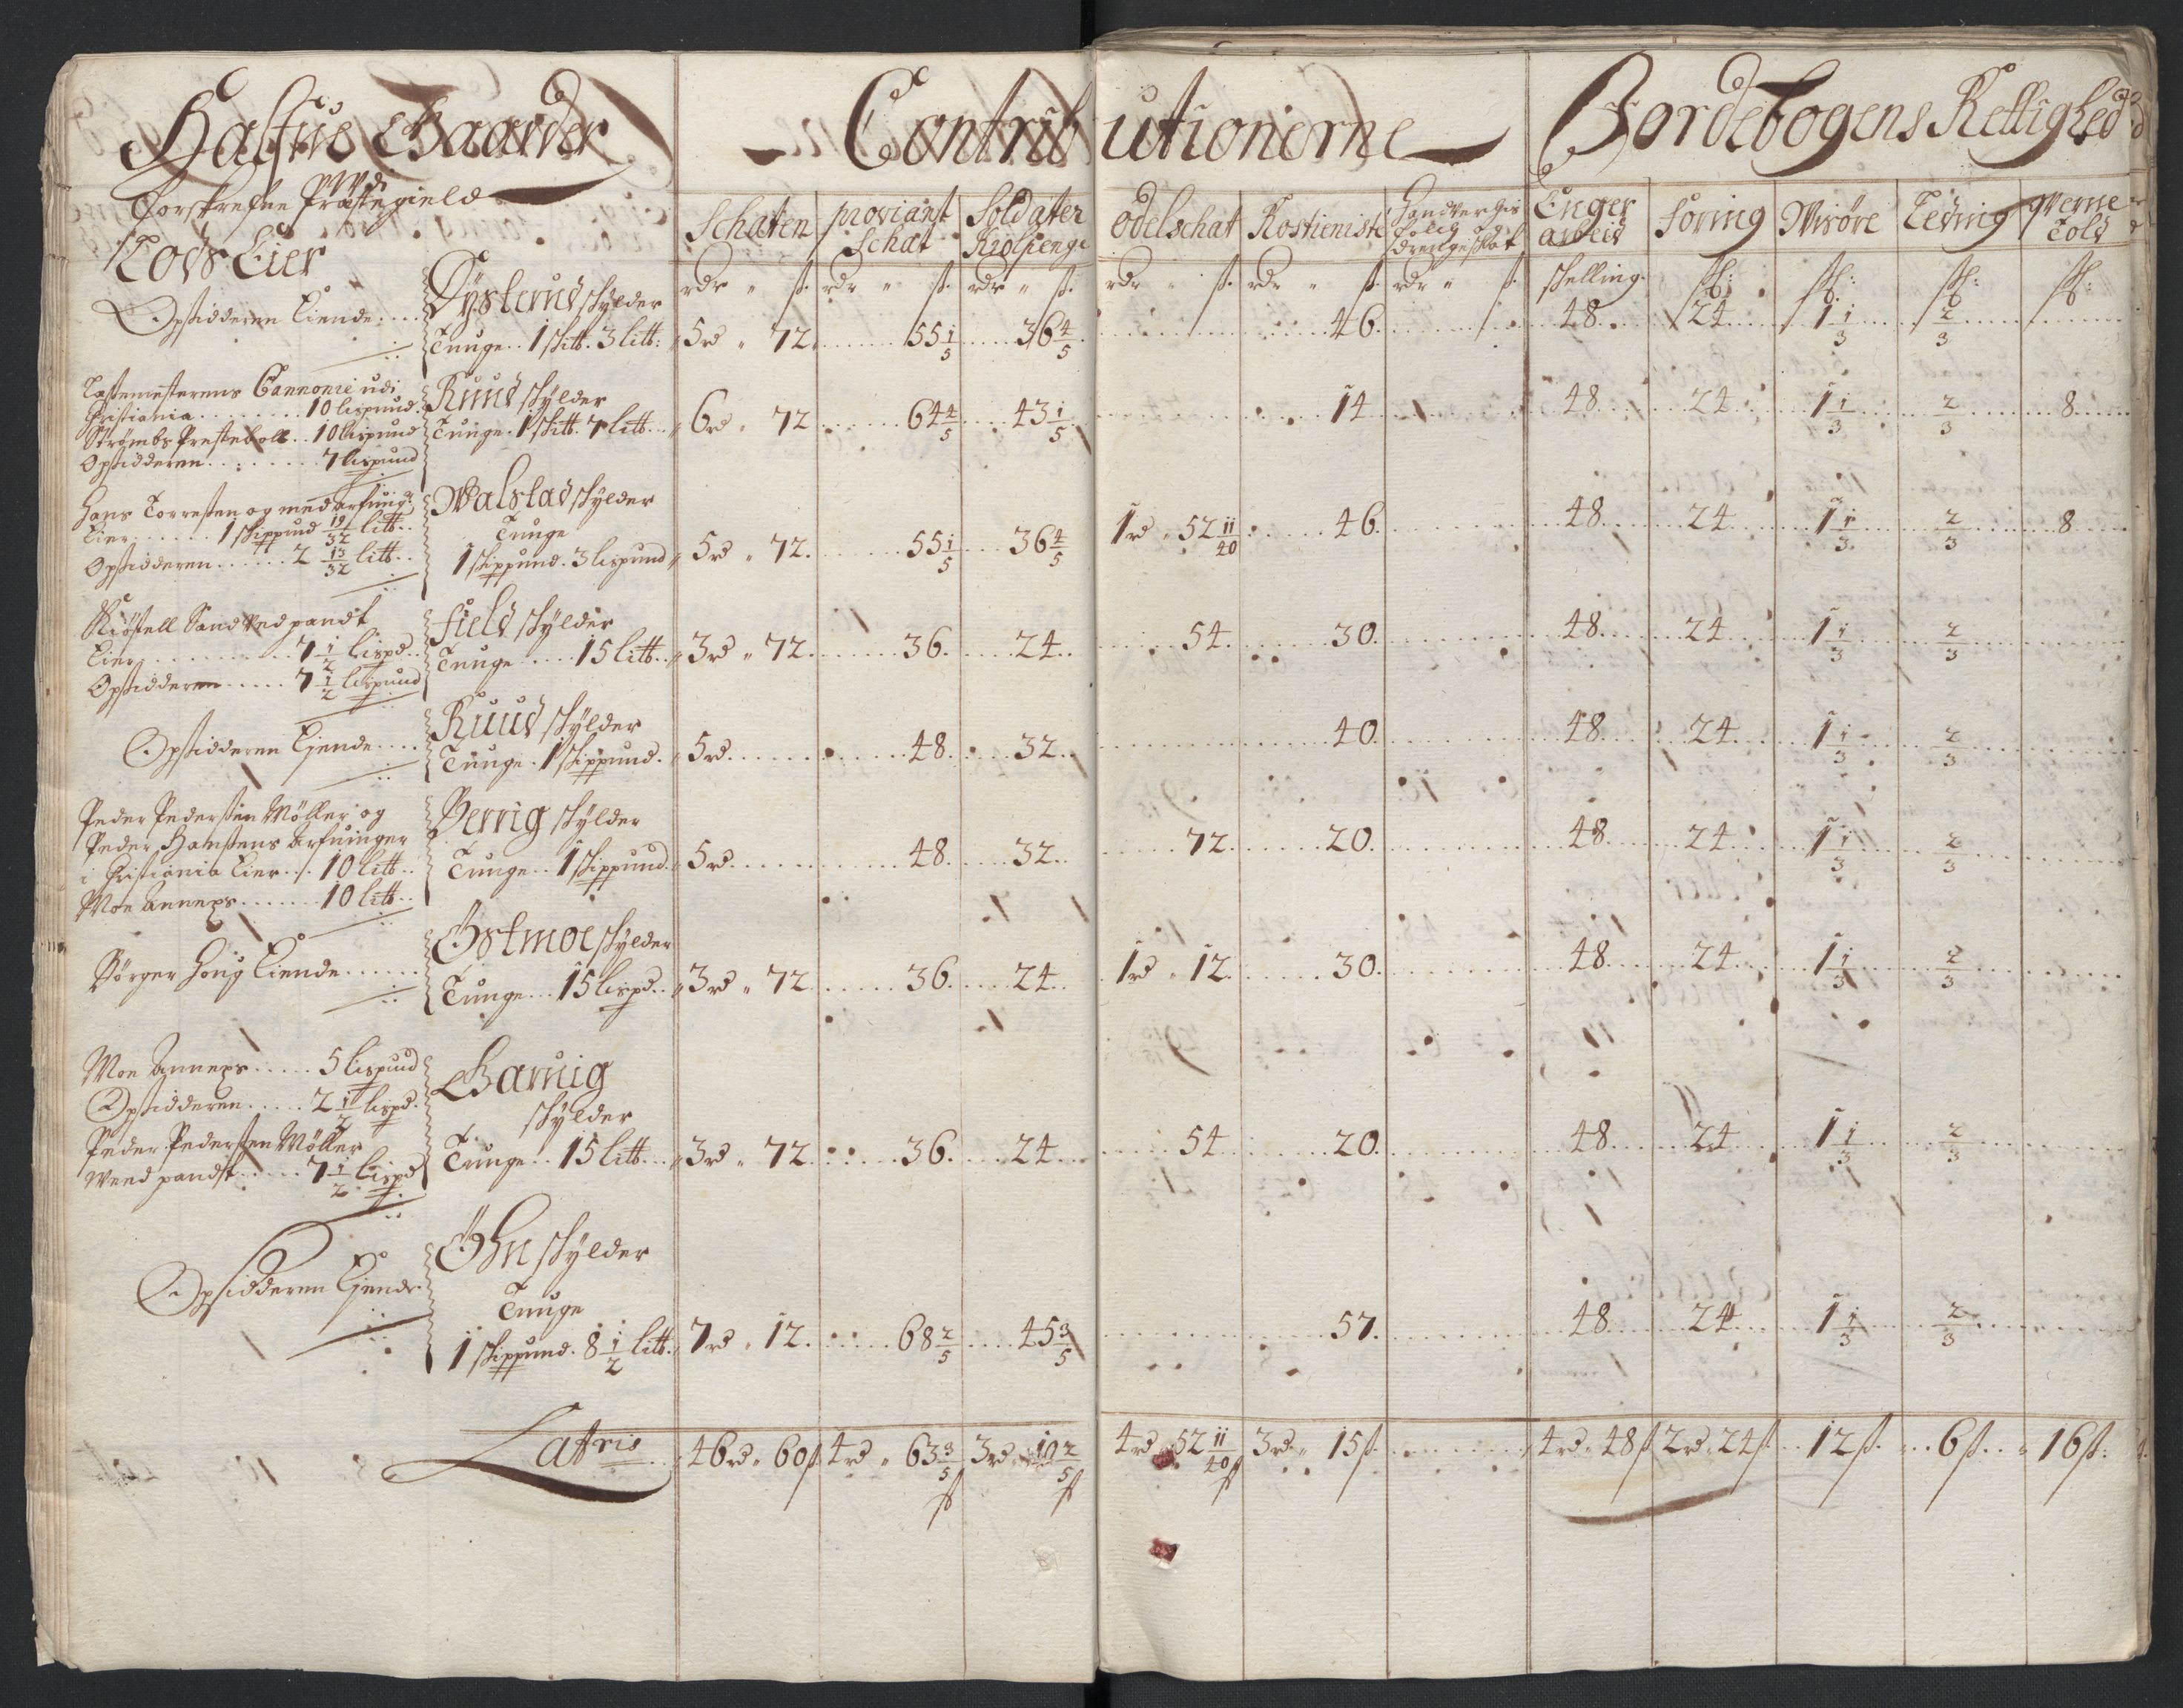 Halfue Gaarder
Contributionerne
Jordebogens Rettighed
udj
Forskrefne Præstegield
Lods Eier
Schaten
proviant Schat
Soldater Kiolpenge
odelschat
Rostieniste
Handverchs Folcks drengeskat
Enger arbeid
Foring
Wisöre
Leding
qverne Told
rdr " ß. rdr " ß. rdr " ß. rdr " ß. rdr " ß. rdr " ß. skelling. sk: sk: sk: sk:
Opsidderen Eiende:
Dÿsterud skÿlder
Tunge 1 skltt. 3 litt: 5rd " 72. 55 1/5 36 4/5 46. 48. 24 1 1/3 2/3
Cannonie udi
Christiania 10 lispund
Strømbs Prestebolt 10 lispund
Opsidderen 7 lispund
Ruud skÿlder
Tunge 1 skltt. 7 litt. 6rd " 72 64 4/5 43 1/5 14 48 24 1 1/3 2/3 8
Hans Torresten og med arfuing:
Eier 1 skippund 19/32 litt.
Opsidderen 2 13/32 litt.
Walstad skÿlder
Tunge
1 skippund. 3 lispund 5rd " 72. 55 1/5 36 4/5 1rd " 52 11/40 46 48 24 1 1/3 2/3 8
Kiøstell Sand ved pandt
Eier 7 1/2 lispd.
Opsidderen 7 1/2 lispund
Field skÿlder
Tunge 15 litt. 3rd " 72. 36. 24. 54. 30. 48 24 1 1/3 2/3
Opsidderen Ejende
Ruud skÿlder
Tunge. 1 skippund. 5rd 48. 32. 40. 48 24 1 1/3 2/3
Peder Pedersen Møller og
Peder Hansens Arfuinger
i Christiania Eier 10 litt.
Moe Annexs 10 litt.
Berrig skÿlder
Tunge 1 skippund. 5rd 48. 32. 72. 20. 48 24 1 1/3 2/3
Børger Houg Eiende
Östmoe skÿlder
Tunge 15 lispd. 3rd " 72 36. 24. 1rd " 12. 30. 48 24 1 1/3 2/3
Moe Annexs 5 lispund
Opsidderen 2 1/2 lispd.
Peder Pedersen Møller
Wend pandt 7 1/2 lispd
skÿlder
Tunge 15 litt. 3rd " 72. 36. 24 54. 20. 48 24 1 1/3 2/3
Opsidderen Ejende.
skÿlder
Tunge
1 skippund. 8 1/2 litt. 7rd " 12. 68 2/5 45 3/5 57. 48 24 1 1/3 2/3
Latris 46rd " 60ß 4rd " 63 3/5 ß 3rd " 10 2/5 ß 4rd " 52 11/40 ß 3rd " 15ß. 4rd " 48ß 2rd " 24ß. 12ß. 6ß. 16ß.